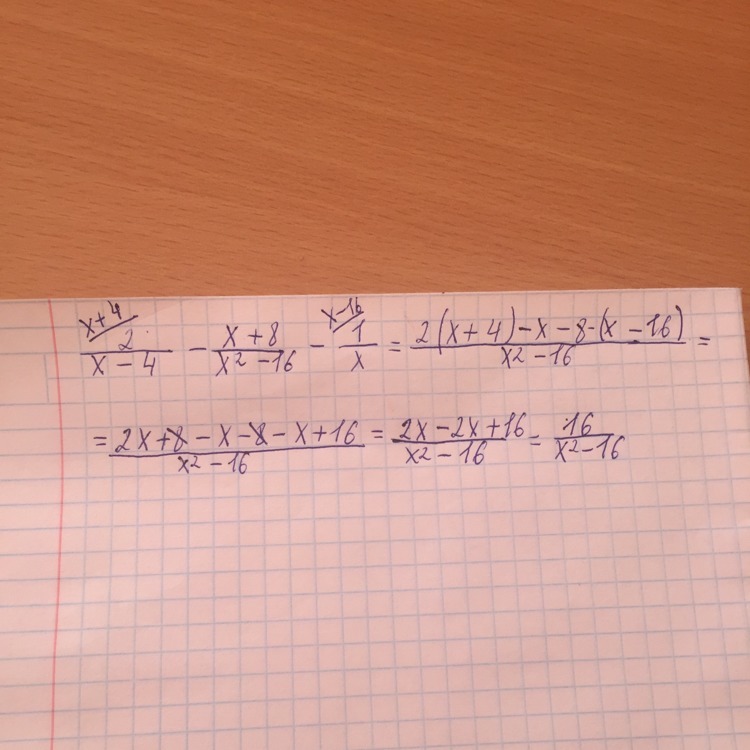 x+4 x-16
2/(x-4) - (x+8)/(x²-16) - 1/x = (2(x+4)-x-8-(x-16))/(x²-16) =
= (2x+8-x-8-x+16)/(x²-16) = (2x-2x+16)/(x²-16) = 16/(x²-16)